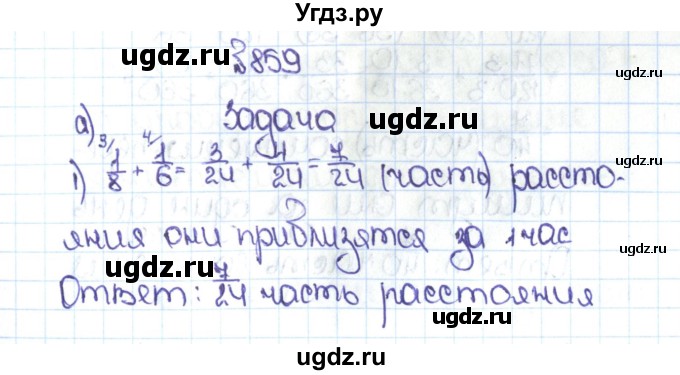 Угдз.ру
№859
а) Задача
1) 1/8 3/ + 1/6 4/ = 3/24 + 4/24 = 7/24 (часть) рассто-
яния они приблизятся за 1 час
Ответ: 7/24 часть расстояния
ugdz.ru
ugdz.ru
ugdz.ru
ugdz.ru
ugdz.ru
ugdz.ru
ugdz.ru
ugdz.ru
ugdz.ru